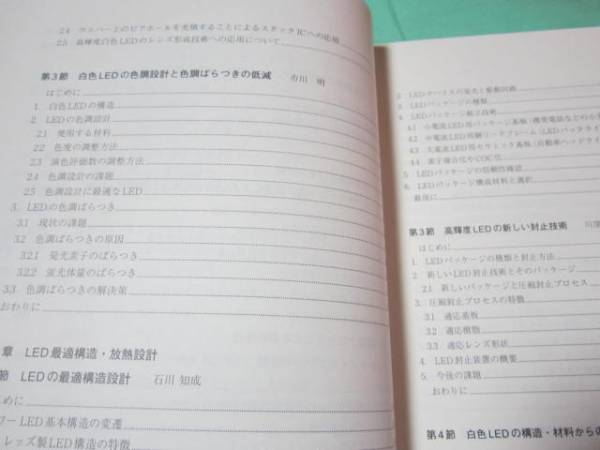 2.4 ウエハー上のビアホールを充填することによるスタックICへの応用
2.5 高輝度白色LEDのレンズ形成技術への応用について
第3節 白色LEDの色調設計と色調ばらつきの低減 市川 明
はじめに
1. 白色LEDの構造
2. LEDの色調設計
2.1 使用する材料
2.2 色度の調整方法
2.3 演色評価数の調整方法
2.4 色調設計の課題
2.5 色調設計に最適なLED
3. LEDの色調ばらつき
3.1 現状の課題
3.2 色調ばらつきの原因
3.2.1 発光素子のばらつき
3.2.2 蛍光体量のばらつき
3.3 色調ばらつきの解決策
おわりに
章 LED最適構造・放熱設計
節 LEDの最適構造設計 石川 知成
じめに
ワーLED基本構造の変遷
レッズ製LED構造の特徴
2. LEDデバイスの発光と駆動回路
3. LEDパッケージの種類
4. LEDパッケージ組立技術
4.1 小電流LED用パッケージ基板(携帯電話などの小
4.2 中電流LED用銅リードフレーム(LEDバックライ
4.3 大電流LED用セラミック基板(自動車ヘッドライ
4.4 素子接合化やCOC化
5. LEDパッケージの信頼性確認
6. LEDパッケージ構成材料と選択
最後に
第3節 高輝度LEDの新しい封止技術
はじめに
1. LEDパッケージの種類と封止方法
2. 新しいLED封止技術とそのパッケージ
2.1 新しいパッケージと圧縮封止プロセス
3. 圧縮封止プロセスの特徴
3.1 適応基板
3.2 適応樹脂
3.3 適応レンズ形状
4. LED封止装置の概要
5. 今後の課題
おわりに
第4節 白色LEDの構造・材料からの